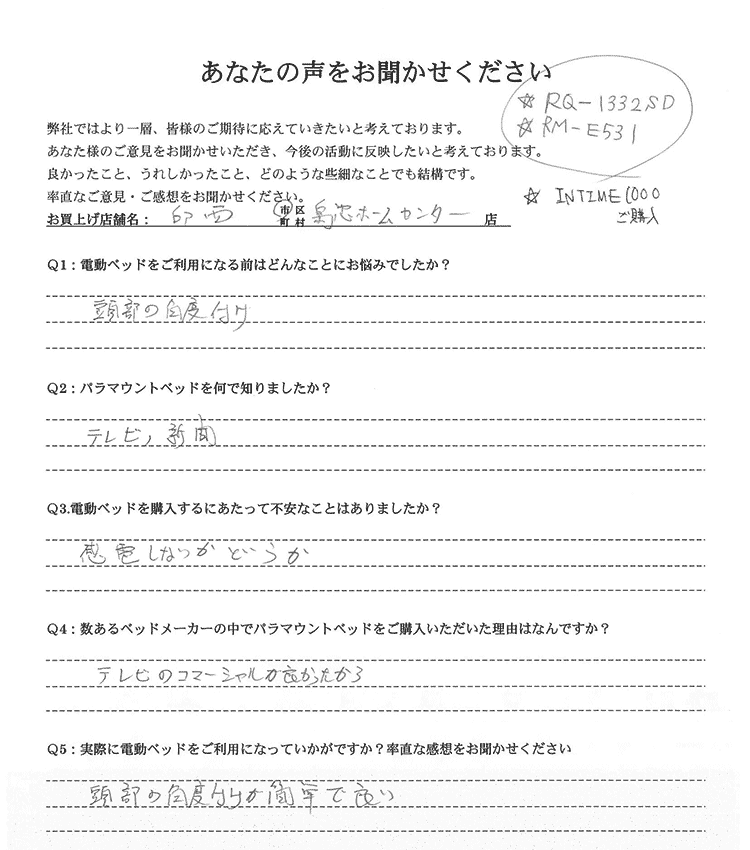 あなたの声をお聞かせください
☆ RQ-1332SD
☆ RM-E531
弊社ではより一層、皆様のご期待に応えていきたいと考えております。
あなた様のご意見をお聞かせいただき、今後の活動に反映したいと考えております。
良かったこと、うれしかったこと、どのような些細なことでも結構です。
率直なご意見・ご感想をお聞かせください。
☆ INTIME1000
ご購入
お買上げ店舗名： 印西 市区町村 島忠ホームセンター 店
Q1：電動ベッドをご利用になる前はどんなことにお悩みでしたか？
頭部の角度付け
Q2：パラマウントベッドを何で知りましたか？
テレビ、新聞
Q3.電動ベッドを購入するにあたって不安なことはありましたか？
感電しないかどうか
Q4：数あるベッドメーカーの中でパラマウントベッドをご購入いただいた理由はなんですか？
テレビのコマーシャルが良かったから
Q5：実際に電動ベッドをご利用になっていかがですか？率直な感想をお聞かせください
頭部の角度付けが簡単で良い